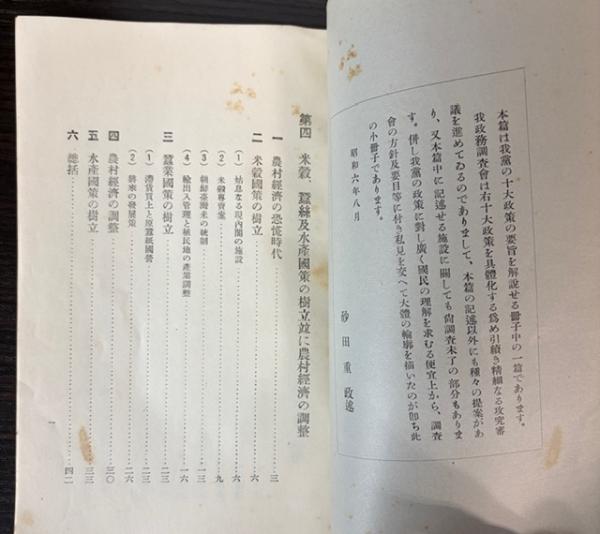 本篇は我黨の十大政策の要旨を解說せる冊子中の一篇であります。
我政務調査會は右十大政策を具體化する爲め引續き精細なる攻究審
議を進めてゐるのでありまして、本篇の記述以外にも種々の提案があ
り、又本篇中に記述せる施設に關しても尙調査未了の部分もありま
す。併し我黨の政策に對し廣く國民の理解を求むる便宜上から、調査
會の方針及要目等に付き私見を交へて大體の輪廓を描いたのが卽ち此
の小冊子であります。
昭和六年八月
砂田重政述
第四 米穀、蠶絲及水產國策の樹立竝に農村經濟の調整
一 農村經濟の恐慌時代……三
二 米穀國策の樹立……六
(1) 姑息なる現內閣の施設……六
(2) 米穀專賣案……九
(3) 朝鮮臺灣米の統制……一三
(4) 輸出入管理と植民地の產業調整……一六
三 蠶業國策の樹立……二三
(1) 滯貨買上と原蠶紙國營……二三
(2) 將來の發展策……二六
四 農村經濟の調整……三〇
五 水產國策の樹立……三三
六 總括……四二